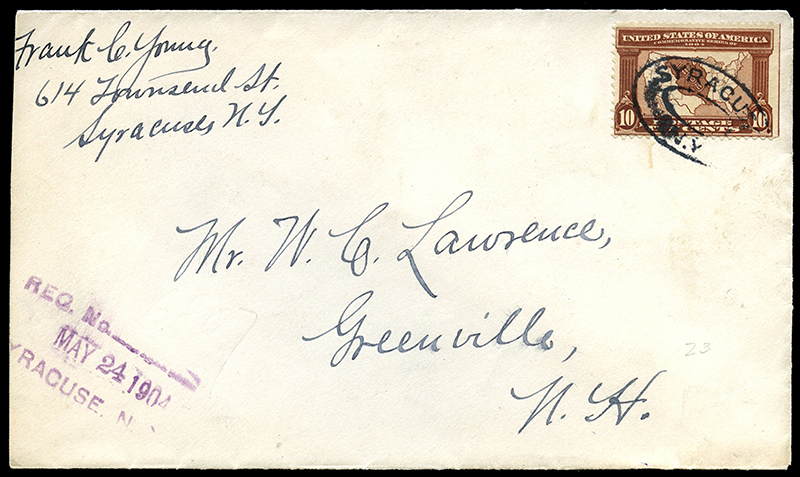 Frank C. Young.
614 Townsend St.
Syracuse N.Y.
UNITED STATES OF AMERICA
COMMEMORATIVE SERIES OF
1904
SYRACUSE,
N.Y.
10 POSTAGE 10
CENTS
Mr. W. C. Lawrence,
Greenville,
N. H.
REG. No
MAY 24 1904
SYRACUSE, N.
23